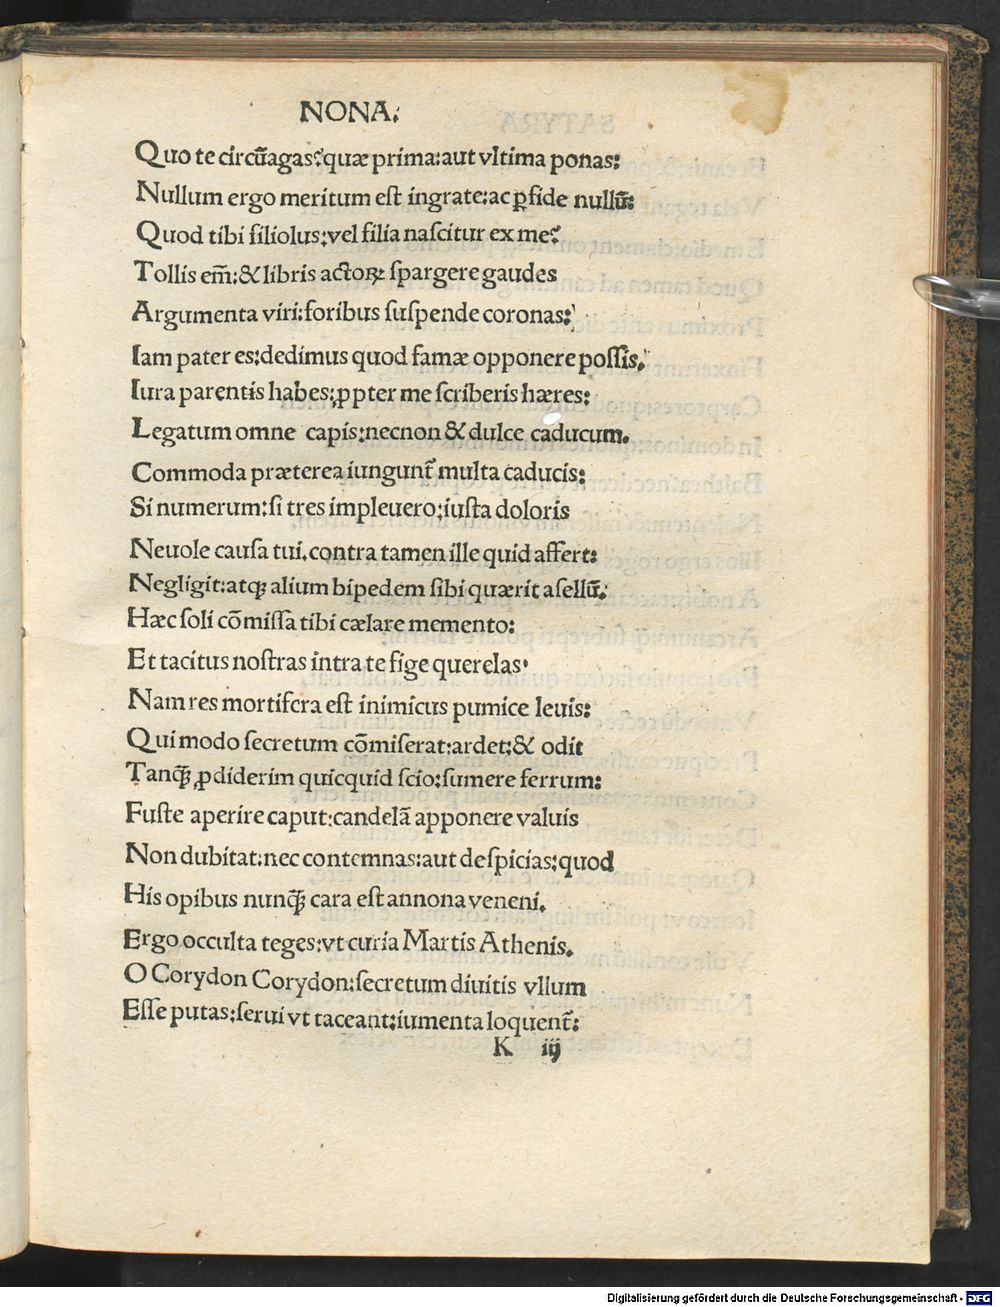 NONA.
Quo te circũagas?quæ prima:aut vltima ponas:
Nullum ergo meritum eſt ingrate:ac ꝑfide nullũ:
Quod tibi filiolus:vel filia naſcitur ex me?
Tollis em̃:&libris actoꝝ ſpargere gaudes
Argumenta viri:foribus ſuſpende coronas:
Iam pater es:dedimus quod famæ opponere poſſis.
Iura parentis habes:ꝓpter me ſcriberis hæres:
Legatum omne capis:necnon & dulce caducum.
Commoda præterea iungunt̃ multa caducis:
Si numerum:ſi tres impleuero:iuſta doloris
Neuole cauſa tui.contra tamen ille quid affert:
Negligit:atqꝫ alium bipedem ſibi quærit aſellũ.
Hæc ſoli cõmiſſa tibi cælare memento:
Et tacitus noſtras intra te fige querelas.
Nam res mortifera eſt inimicus pumice leuis:
Qui modo ſecretum cõmiſerat:ardet:& odit
Tanq̃ꝫ ꝓdiderim quicquid ſcio:ſumere ferrum:
Fuſte aperire caput:candelã apponere valuis
Non dubitat:nec contemnas:aut deſpicias:quod
His opibus nunq̃ꝫ cara eſt annona veneni.
Ergo occulta teges:vt curia Martis Athenis.
O Corydon Corydon:ſecretum diuitis vllum
Eſſe putas:ſerui vt taceant:iumenta loquent̃:
K iij
Digitalisierung gefördert durch die Deutsche Forschungsgemeinschaft - DFG